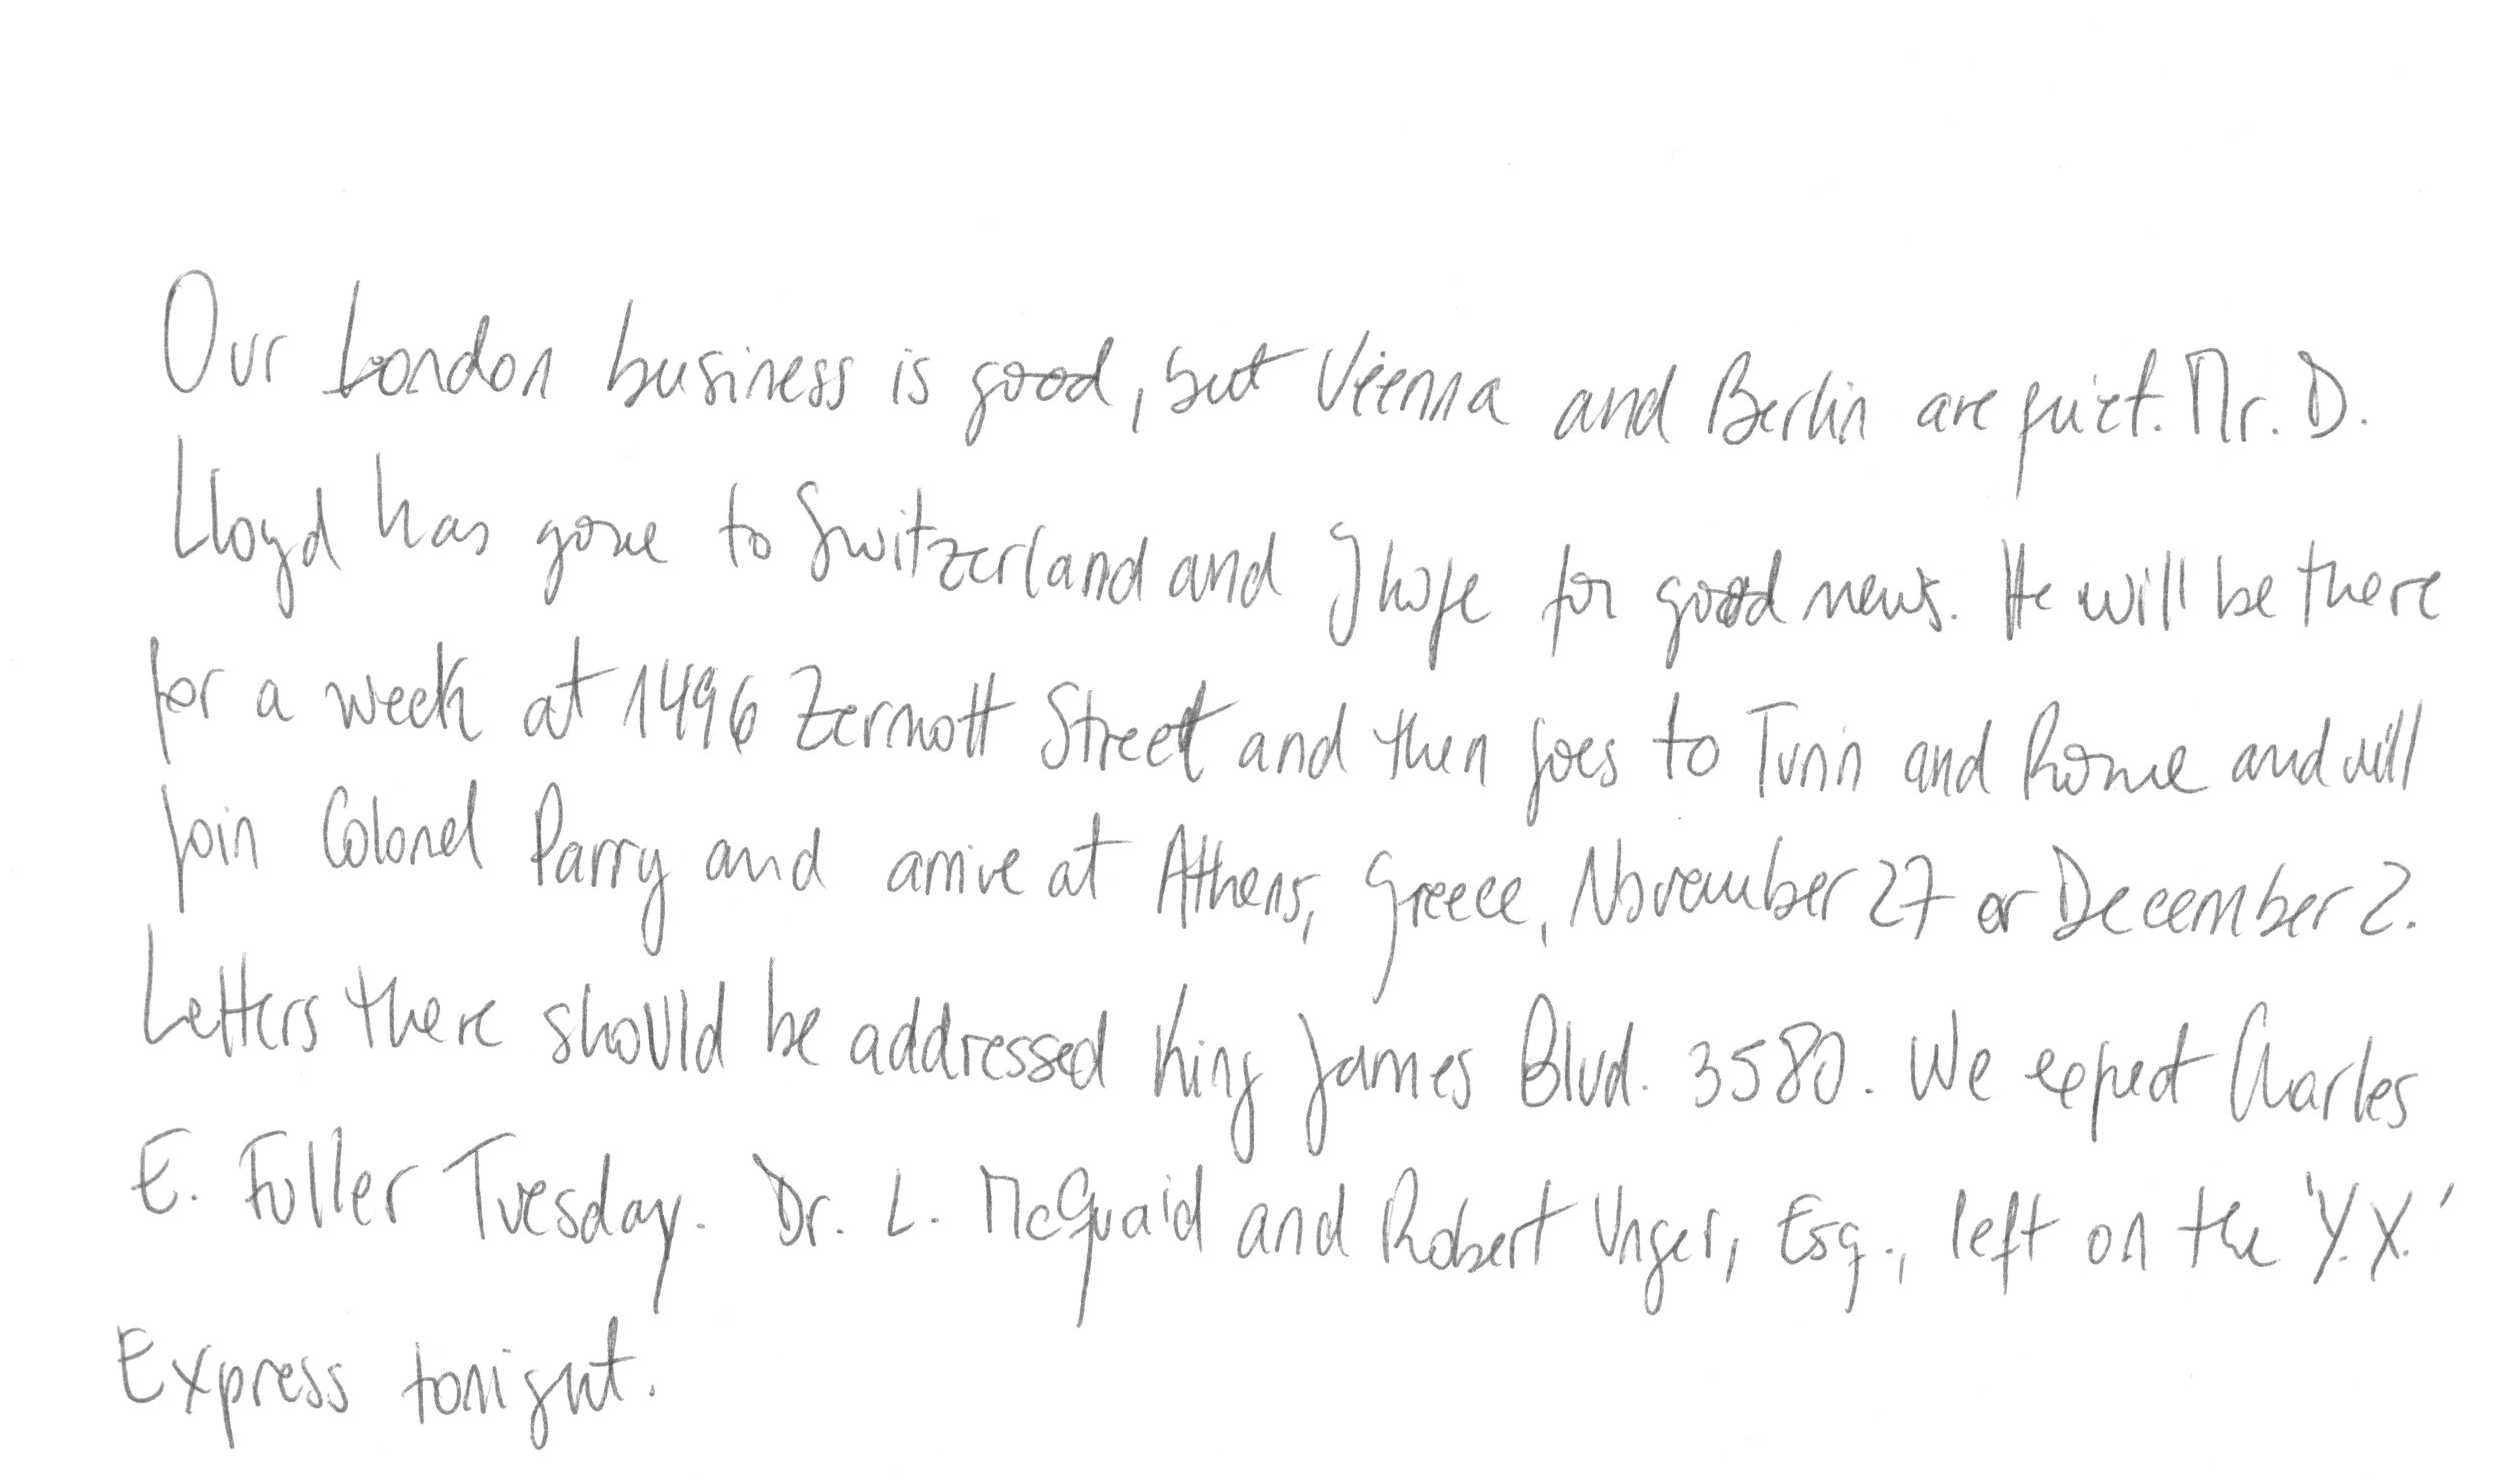 Our London business is good, but Vienna and Berlin are quiet. Mr. D.
Lloyd has gone to Switzerland and I hope for good news. He will be there
for a week at 1496 Zermott Street and then goes to Turin and Rome and will
join Colonel Parry and arrive at Athens, Greece, November 27 or December 2.
Letters there should be addressed King James Blvd. 3580. We expect Charles
E. Fuller Tuesday. Dr. L. McQuaid and Robert Unger, Esq., left on the 'Y.X.'
Express tonight.